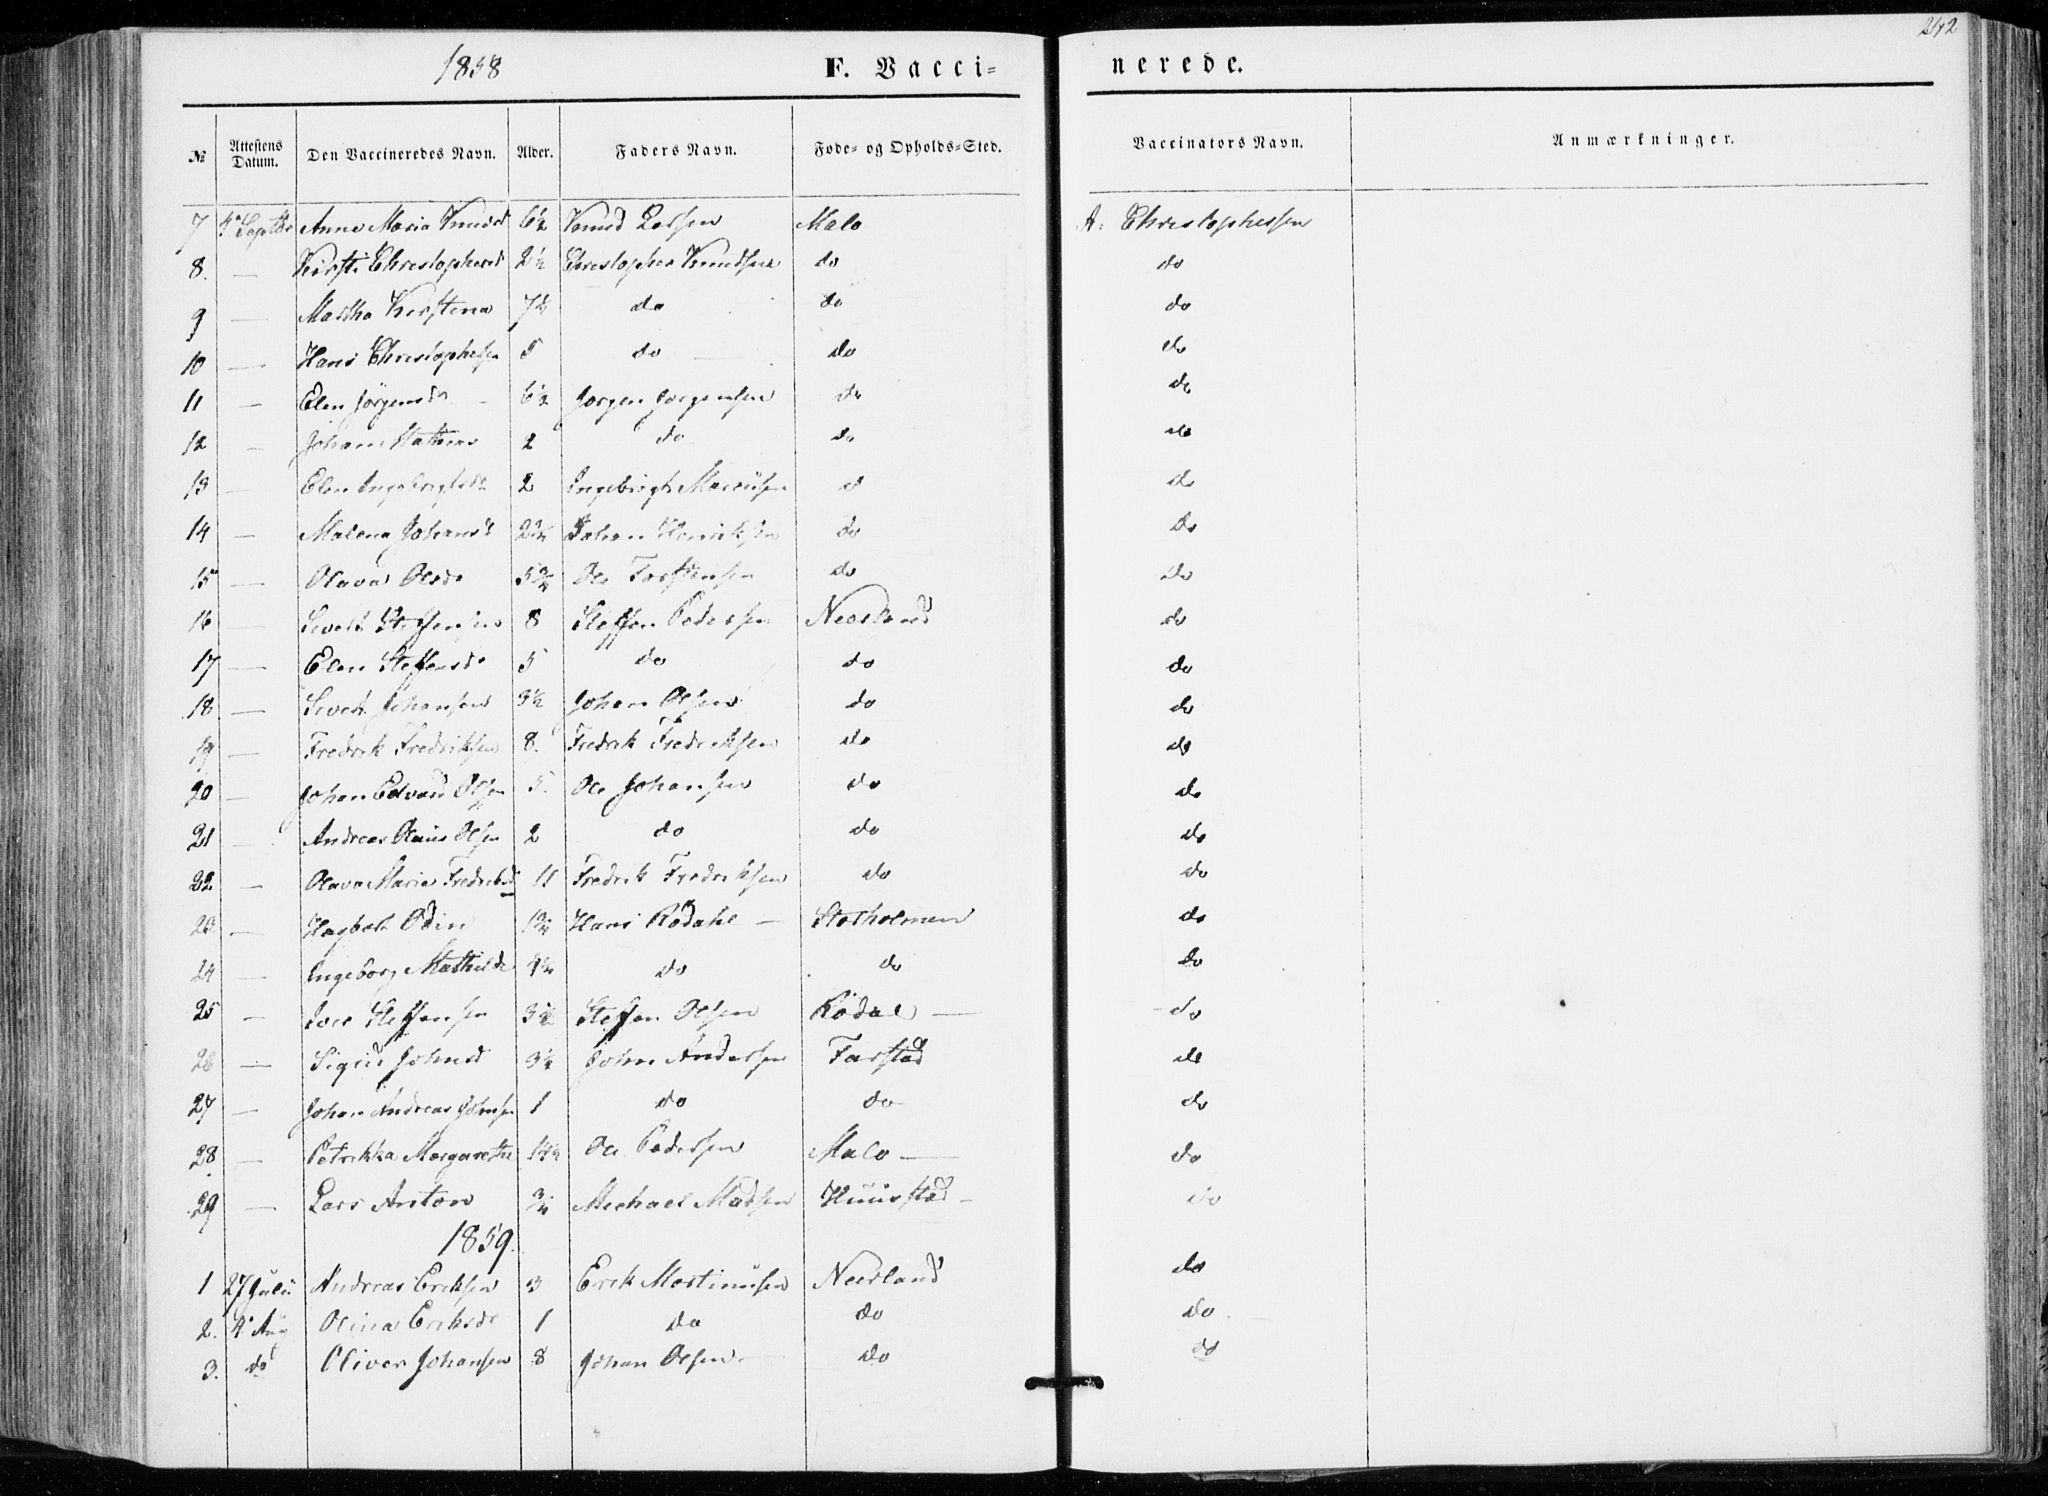 242
1858 F. Vacci= nerede.
№ Attestens Datum. Den Vaccineredes Navn. Alder. Faders Navn. Føde= og Opholds=Sted. Vaccinators Navn. Anmærkninger.
7 4 Septbr Anne Maria Knudsd 6½ Knud Larsen Malo A. Christophersen
8. — Kirsti Christophersd 2½ Christopher Knudsen do do
9 — Martha Kirstina do do do
10 — Hans Christophersen 5 do — do do
11 — Elen Jörgensdr 6½ Jorgen Jorgensen do do
12 — Johan 2 do do do
13 — Elen Ingebrigtsdr 2 Ingebrigt do
14 — Malena Johansd Johan Henriksen do do
15 — Olava Olsdr 5¾ Ole Torstensen do do
16 — Sivert Steffensen 8 Steffen Pedersen Neerland do
17 — Elen Steffensdr 5 do do do
18 — Sivert Johansen 3½ Johan Olsen do do
19 — Fredrik Fredriksen 8. Fredrik Fredriksen do do
20 — Johan Edvard Olsen 5. Ole Johansen do do
21 — Andreas Olaus Olsen 2 do do do
22 — Olava Maria Fredriksd 11 Fredrik Fredriksen do do
23 — Hagbart Odin 1¾ Hans Rödahl — Storholmen do
24 — Ingeborg Mathilde do do do
25 — Iver Steffensen 3½ Steffen Olsen Rödal — do
26 — Sigrid Johnsd 3½ John Andersen Farstad do
27 — Johan Andreas Johnsen 1 do do do
28 — Petrikka Margarethe Ole Pedersen Malo — do
29 — Lars Anton ¾ Michael Madsen Huustad — do
1859.
1 27 Julii Andreas Eriksen 3 Erik Martinusen Neerland do
2. 4 Aug Olina Eriksdr 1 do do do
3. do Oliver Johansen 8 Johan Olsen — do do